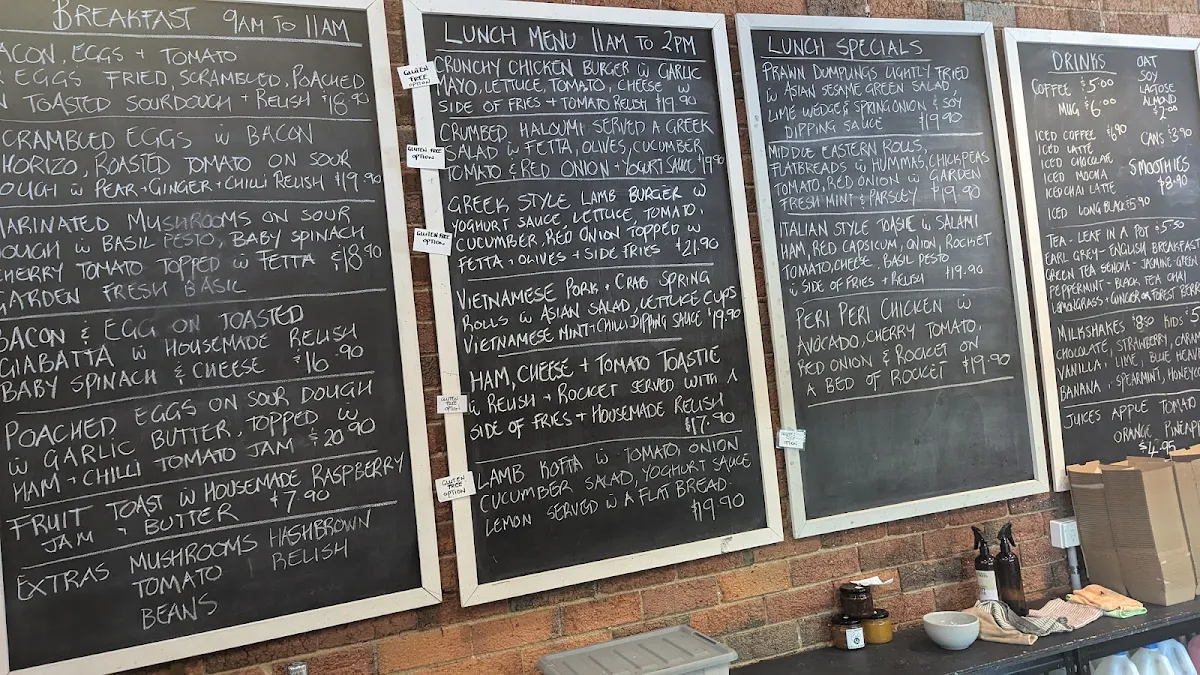 BREAKFAST 9AM TO 11AM
BACON, EGGS + TOMATO
EGGS FRIED, SCRAMBLED, POACHED
TOASTED SOURDOUGH + RELISH $18.90
SCRAMBLED EGGS W BACON
CHORIZO, ROASTED TOMATO ON SOUR
DOUGH W PEAR + GINGER + CHILLI RELISH $19.90
MARINATED MUSHROOMS ON SOUR
DOUGH W BASIL PESTO, BABY SPINACH
CHERRY TOMATO TOPPED W FETTA $18.90
GARDEN FRESH BASIL
BACON & EGG ON TOASTED
CIABATTA W HOUSEMADE RELISH
BABY SPINACH & CHEESE $16.90
POACHED EGGS ON SOUR DOUGH
W GARLIC BUTTER, TOPPED W
HAM + CHILLI TOMATO JAM $20.90
FRUIT TOAST W HOUSEMADE RASPBERRY
JAM + BUTTER $7.90
EXTRAS MUSHROOMS HASHBROWN
TOMATO RELISH
BEANS
LUNCH MENU 11AM TO 2PM
GLUTEN FREE OPTION
CRUNCHY CHICKEN BURGER W GARLIC
MAYO, LETTUCE, TOMATO, CHEESE W
SIDE OF FRIES + TOMATO RELISH $19.90
GLUTEN FREE
OPTION
CRUMBED HALOUMI SERVED A GREEK
SALAD W FETTA, OLIVES, CUCUMBER
TOMATO & RED ONION + YOGURT SAUCE $19.90
GLUTEN FREE
OPTION
GREEK STYLE LAMB BURGER W
YOGURT SAUCE LETTUCE, TOMATO,
CUCUMBER, RED ONION TOPPED W
FETTA + OLIVES + SIDE FRIES $21.90
VIETNAMESE PORK + CRAB SPRING
ROLLS W ASIAN SALAD, LETTUCE CUPS
VIETNAMESE MINT + CHILLI DIPPING SAUCE $19.90
GLUTEN
FREE
OPTION
HAM, CHEESE + TOMATO TOASTIE
W RELISH + ROCKET SERVED WITH A
SIDE OF FRIES + HOUSEMADE RELISH
$17.90
GLUTEN
FREE
OPTION
LAMB KOFTA W TOMATO, ONION
CUCUMBER SALAD, YOGHURT SAUCE
LEMON SERVED W A FLAT BREAD.
$19.90
LUNCH SPECIALS
PRAWN DUMPLINGS LIGHTLY FRIED
W ASIAN SESAME GREEN SALAD,
LIME WEDGE & SPRING ONION & SOY
DIPPING SAUCE $19.90
MIDDLE EASTERN ROLLS,
FLATBREADS W HUMMAS, CHICKPEAS
TOMATO, RED ONION W GARDEN
FRESH MINT & PARSLEY $19.90
ITALIAN STYLE TOASIE W SALAMI
HAM, RED CAPSICUM, ONION, ROCKET
TOMATO, CHEESE, BASIL PESTO
W SIDE OF FRIES + RELISH $19.90
PERI PERI CHICKEN W
AVOCADO, CHERRY TOMATO,
RED ONION & ROCKET ON
A BED OF ROCKET $19.90
DRINKS
COFFEE $5.00
MUG $6.00
OAT
SOY
LACTOSE
ALMOND
$2.00
ICED COFFEE $6.90
ICED LATTE
ICED CHOCOLATE
ICED MOCHA
ICED CHAI LATTE
ICED LONG BLACK $5.90
CANS $3.90
SMOOTHIES
$8.90
TEA - LEAF IN A POT $5.50
EARL GREY - ENGLISH BREAKFAST
GREEN TEA SENCHA - JASMINE GREEN
PEPPERMINT - BLACK TEA CHAI
LEMONGRASS + GINGER OR FOREST BERRI
MILKSHAKES $8.50 KIDS $5
CHOCOLATE, STRAWBERRY, CARAM
VANILLA, LIME, BLUE HEAVE
BANANA, SPEARMINT, HONEYCO
JUICES APPLE TOMATO
ORANGE, PINEAPP
$4.95